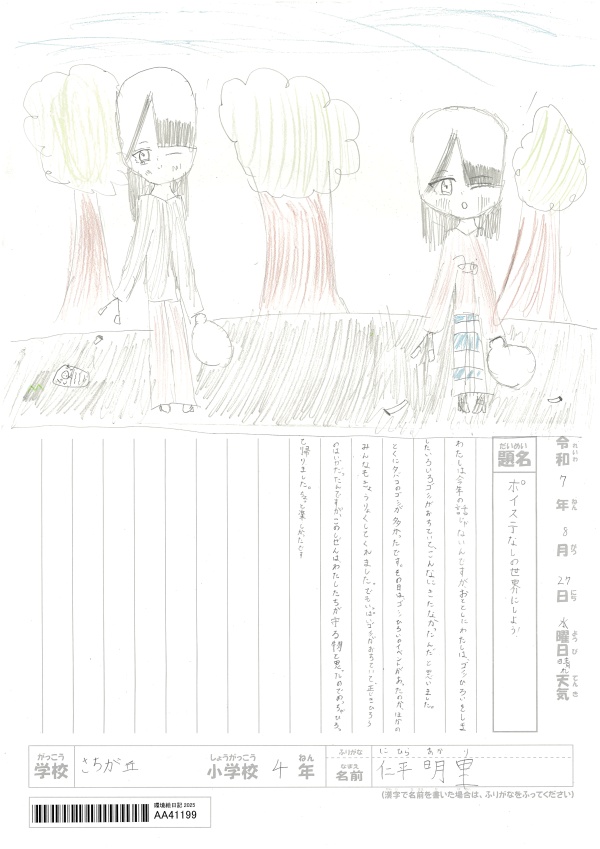 令和 れいわ 7 年 ねん 8 月 がつ 27 日 にち 水 曜日 ようび 晴れ 天気 てんき
題名 だいめい ポイステなしの世界にしよう!
わたしは今年の話じゃないんですが、おととしにわたしは、ゴミひろいをしま
したいろいろゴミがおちていて、こんなにきたなかったんだと思いました。
とくにタバコのゴミが多かったです。その日は、ゴミひろいのイベントがあったのか、ほかの
みんなもきょうりょくしてくれました。でもいっぱいゴミがおちていて、正じきひろう
のはいがだったんですが、このしぜんは、わたしたちが守る物と思ったのでめっちゃひろっ
て帰りました。ちょっと楽しかったです
学校 がっこう さちが丘 小学校 しょうがっこう 4 年 ねん
ふりがな にひら あかり
名前 なまえ 仁平 明里
(漢字で名前を書いた場合は、ふりがなをふってください)
環境絵日記 2025
AA41199